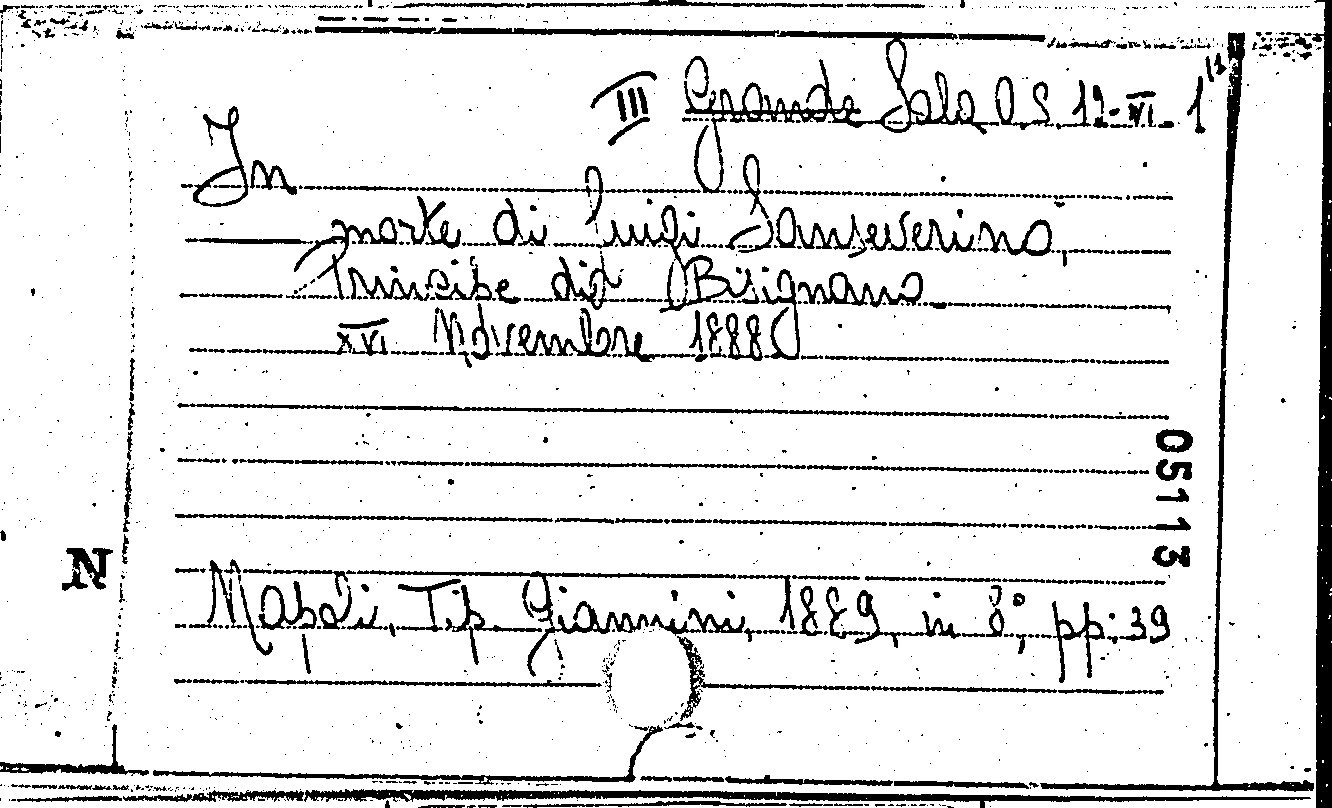 III Grande Sala O.S. 12-VI. 1(1
In
morte di Luigi Sanseverino,
Principe di Bisignano
XVI Novembre 1888
05113
N
Napoli, Tip. Giannini, 1889, in 8°, pp. 39